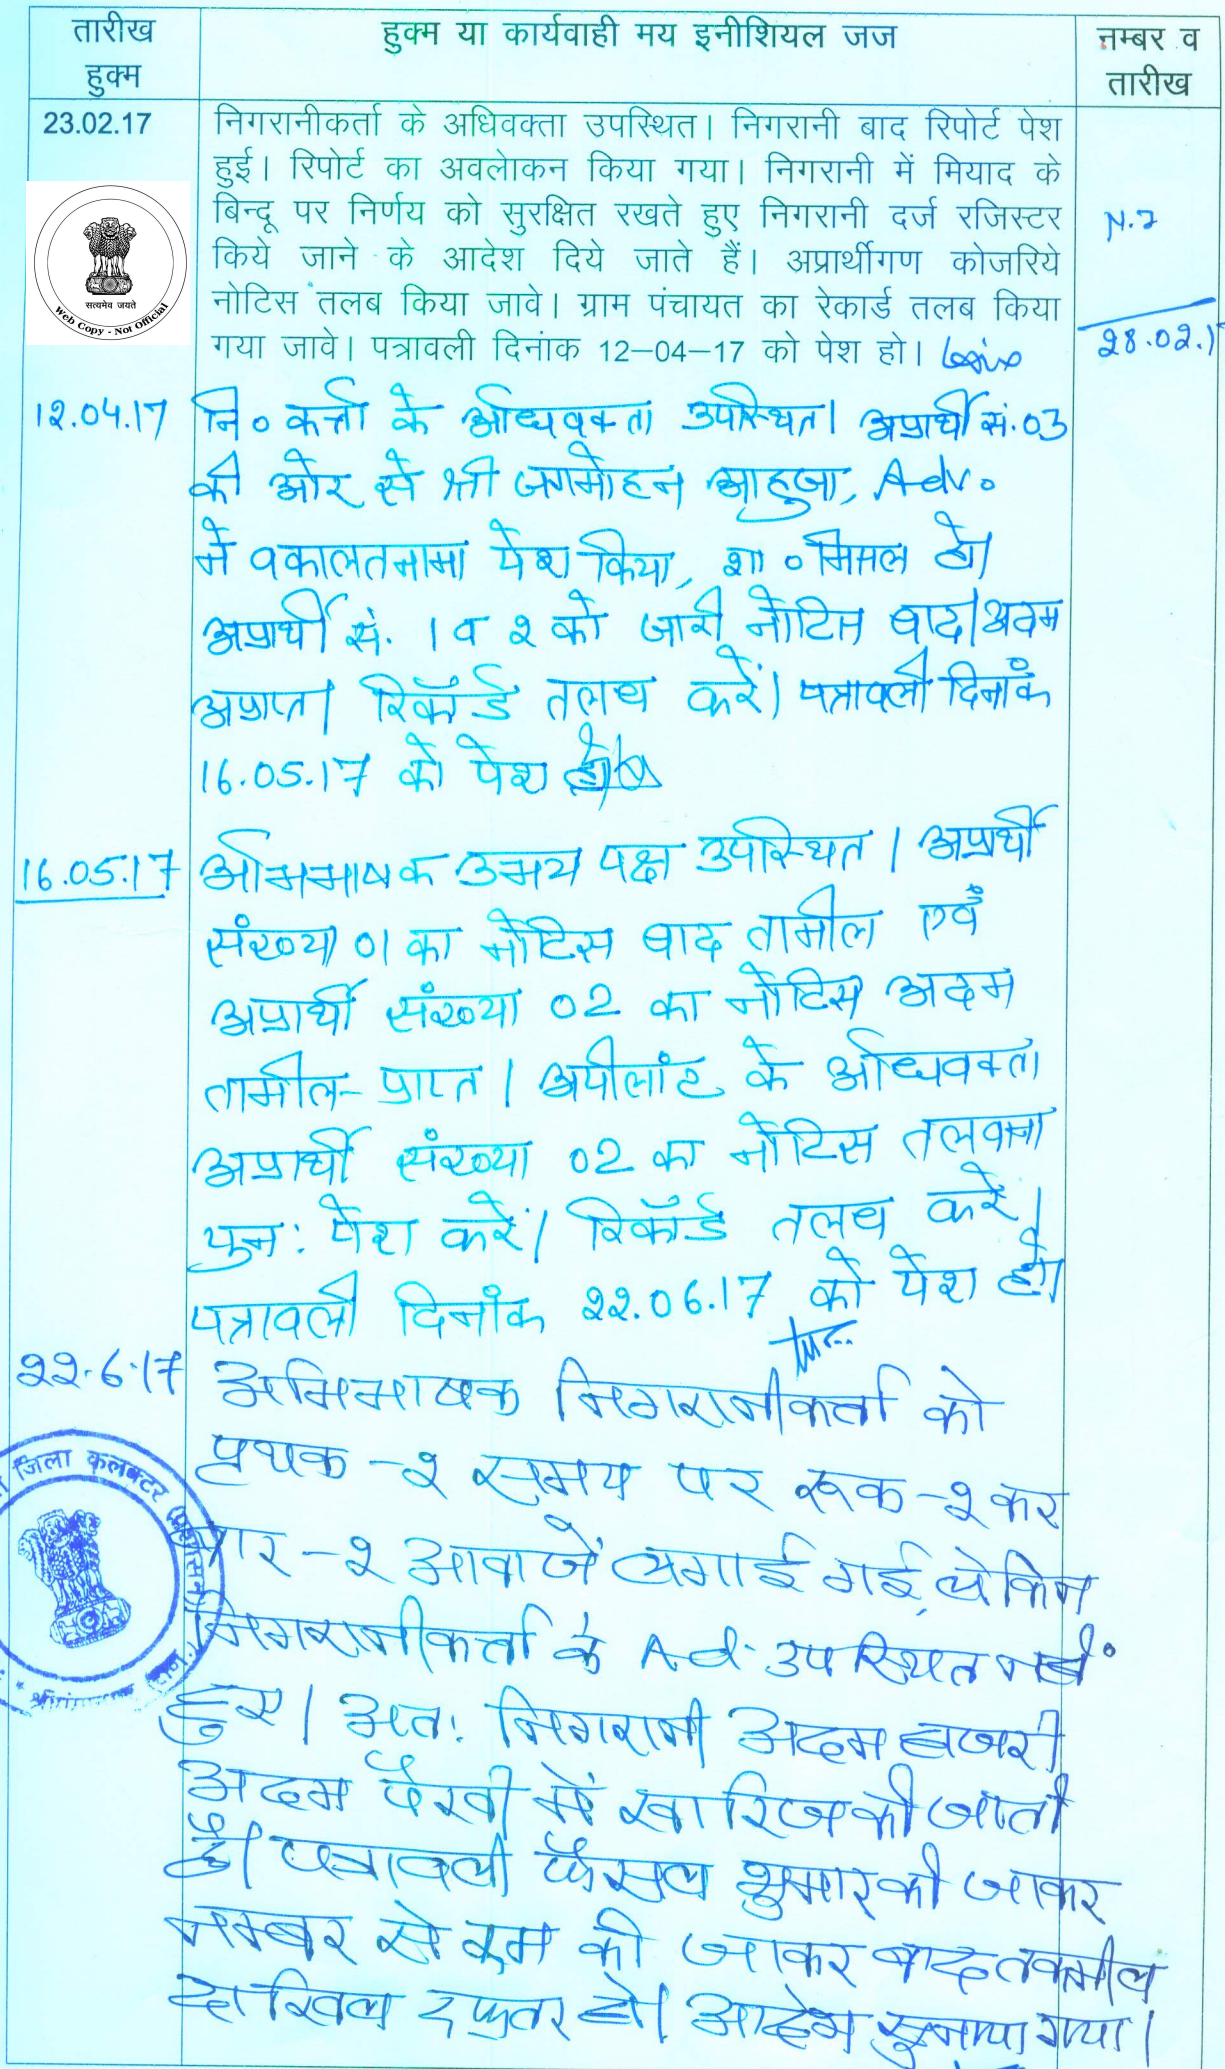 तारीख हुक्म
हुक्म या कार्यवाही मय इनीशियल जज
नम्बर व तारीख
23.02.17
निगरानीकर्ता के अधिवक्ता उपस्थित। निगरानी बाद रिपोर्ट पेश
हुई। रिपोर्ट का अवलोकन किया गया। निगरानी में मियाद के
बिन्दू पर निर्णय को सुरक्षित रखते हुए निगरानी दर्ज रजिस्टर
किये जाने के आदेश दिये जाते हैं। अप्रार्थीगण कोजरिये
नोटिस तलब किया जावे। ग्राम पंचायत का रेकार्ड तलब किया
गया जावे। पत्रावली दिनांक 12–04–17 को पेश हो।
28.02.1
सत्यमेव जयते
Web Copy - Not Official
12.04.17
नि० कर्त्ता के अधिवक्ता उपस्थित। अप्रार्थी सं. 03
की ओर से श्री जगमोहन आहुजा, Adv.
ने वकालतनामा पेश किया, शा० मिसल हो।
अप्रार्थी सं. 1 व 2 को जारी नोटिस बाद/अदम
अप्राप्त। रिकॉर्ड तलब करें। पत्रावली दिनांक
16.05.17 को पेश हो।
16.05.17
अभिभाषक उभय पक्ष उपस्थित। अप्रार्थी
संख्या 01 का नोटिस बाद तामील एवं
अप्रार्थी संख्या 02 का नोटिस अदम
तामील प्राप्त। अपीलांट के अधिवक्ता
अप्रार्थी संख्या 02 का नोटिस तलवाना
पुन: पेश करें। रिकॉर्ड तलब करें।
पत्रावली दिनांक 22.06.17 को पेश हो।
22.6.17
अभिभाषक निगरानीकर्ता को
पृथक-2 समय पर रूक-2 कर
बार-2 आवाजें लगाई गई, लेकिन
निगरानीकर्ता के Ad. उपस्थित नहीं
हुए। अत: निगरानी अदम हाजरी
अदम पैरवी में खारिज की जाती
है। पत्रावली फैसल शुमार की जाकर
नम्बर से कम की जाकर बाद तकमील
दाखिल दफ्तर हो। आदेश सुनाया गया।
जिला कलक्टर (प्रशासन)